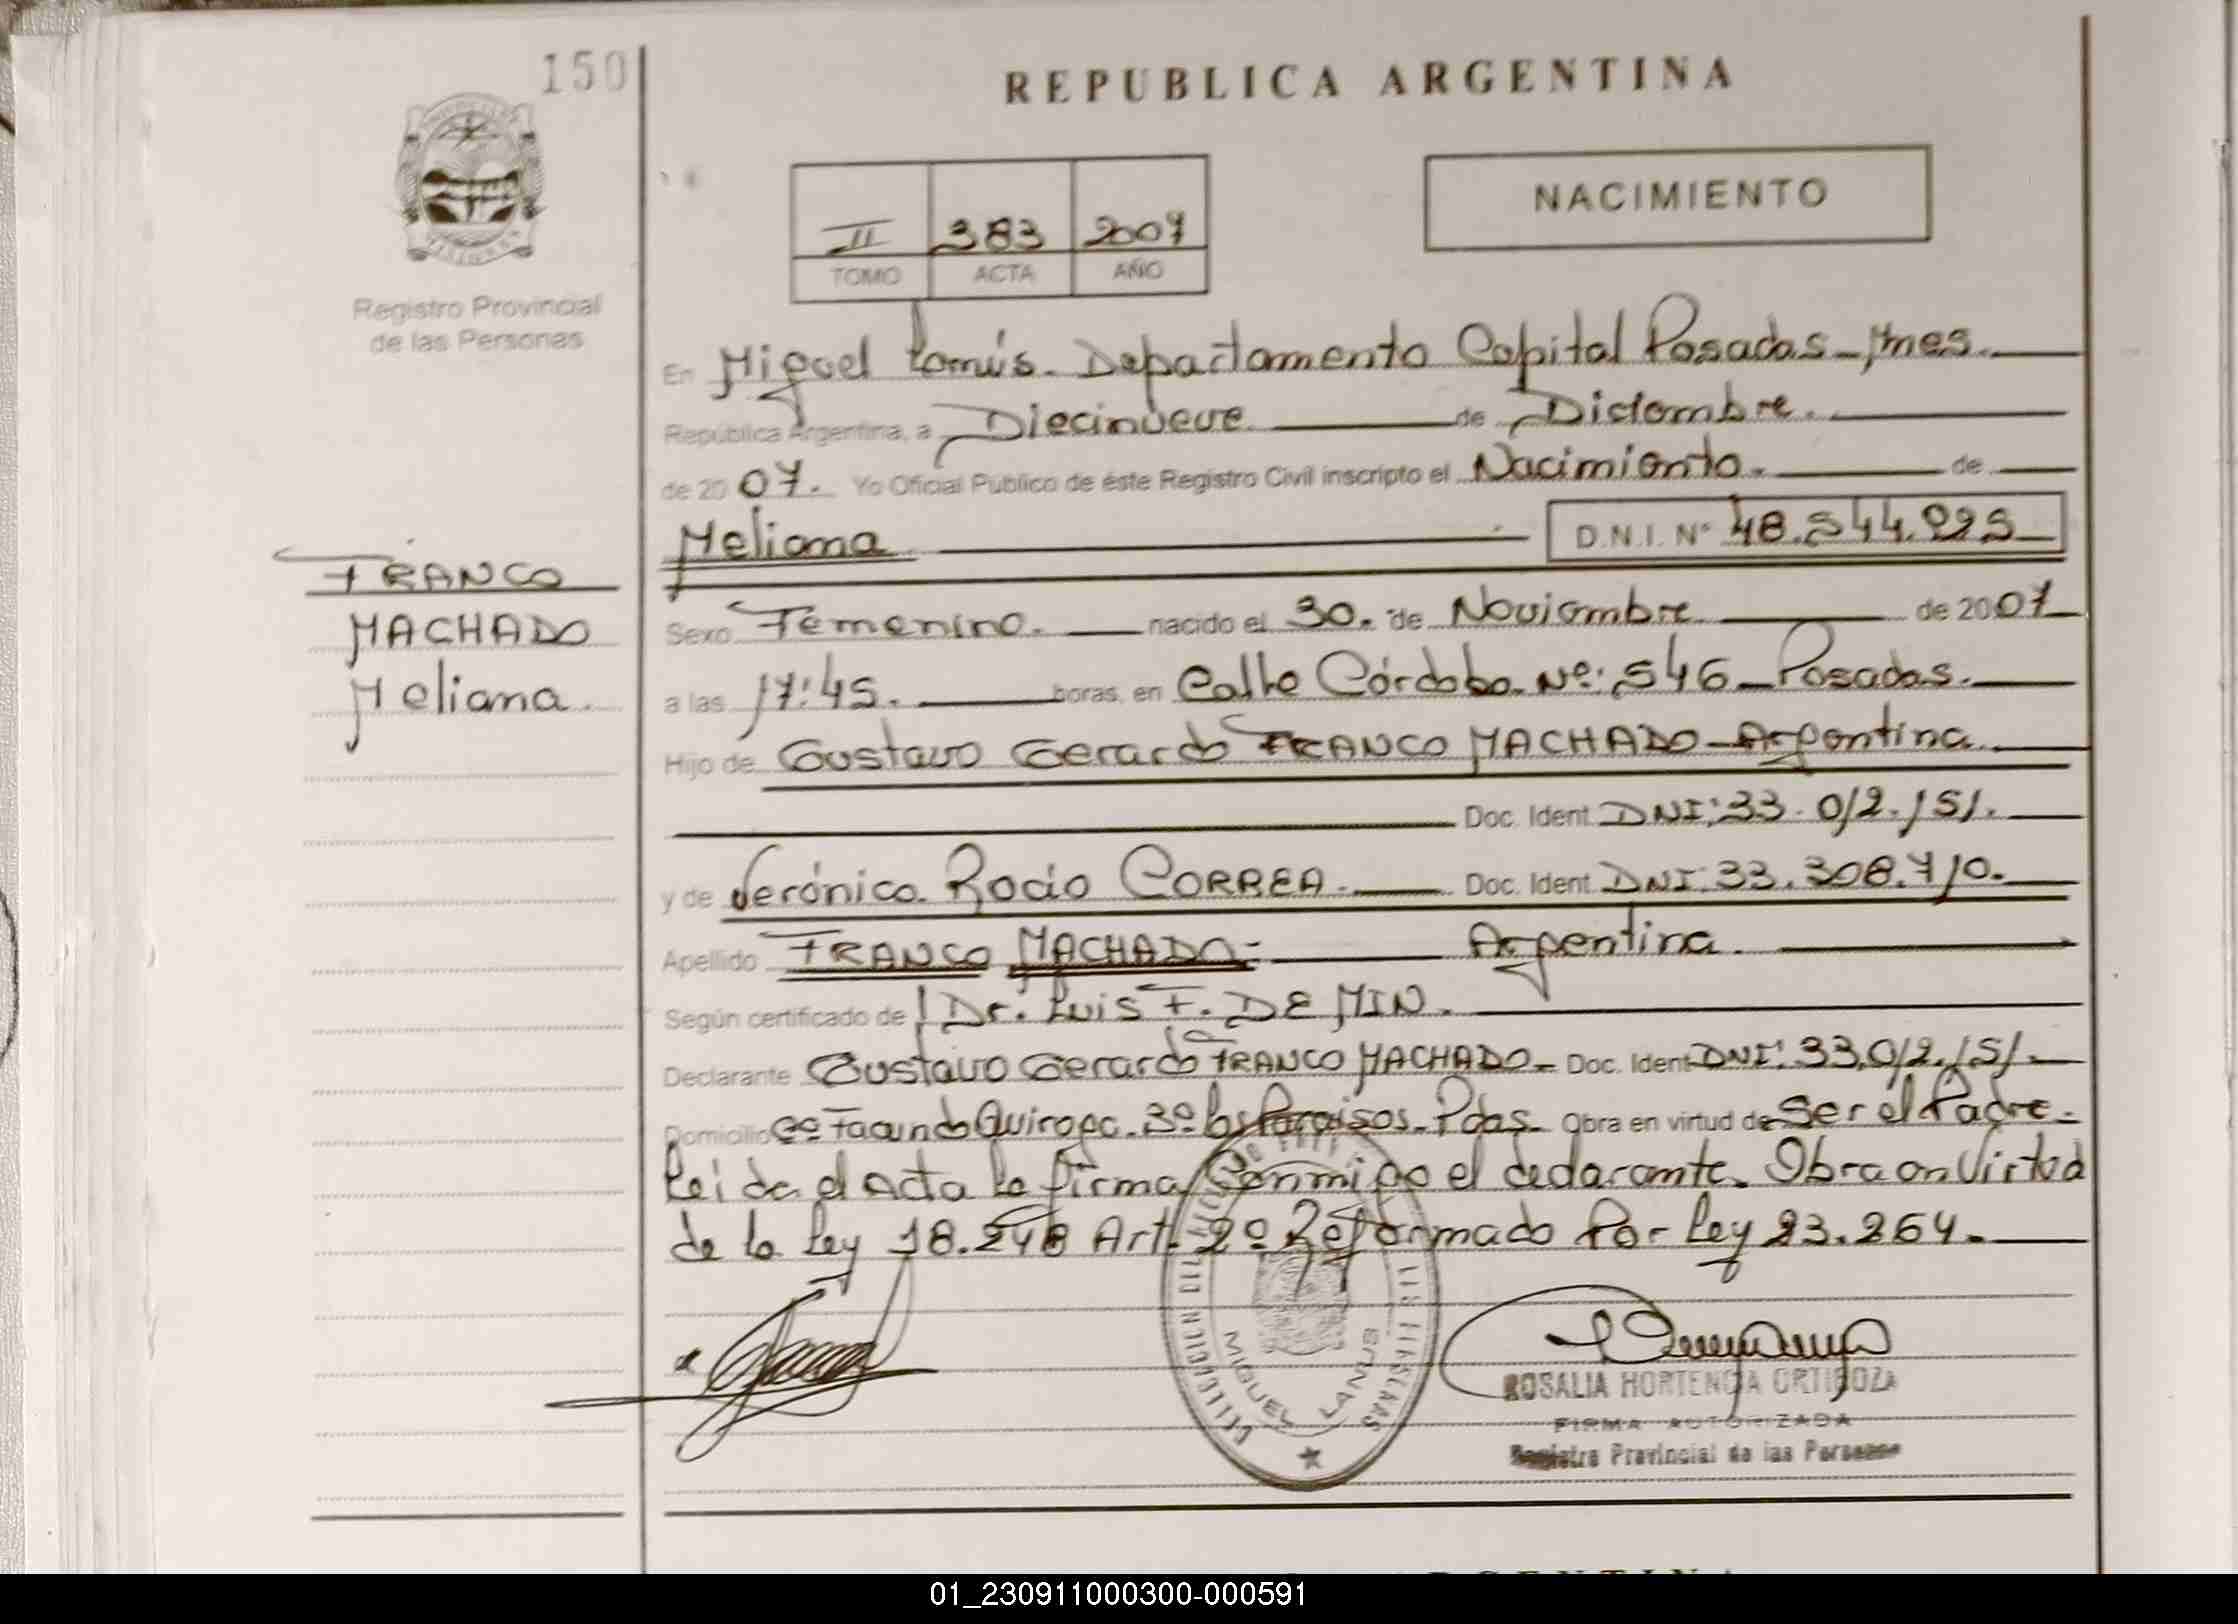 150
REPUBLICA ARGENTINA
NACIMIENTO
II 383 2007
TOMO ACTA AÑO
Registro Provincial
de las Personas
En Miguel Lanús. Departamento Capital Posadas - Mnes.
República Argentina, a Diecinueve de Diciembre.
de 2007. Yo Oficial Publico de éste Registro Civil inscripto el Nacimiento. de
Meliana D.N.I. Nº 48.544.995
FRANCO
MACHADO
Meliana.
Sexo Femenino. nacido el 30. de Noviembre de 2007
a las 17:45. horas, en Calle Córdoba Nº: 546 - Posadas.
Hijo de Gustavo Gerardo FRANCO MACHADO - Argentina
Doc. Ident. DNI: 33.012.151.
y de Verónica Rocío CORREA. Doc. Ident. DNI. 33.308.710.
Apellido FRANCO MACHADO - Argentina.
Según certificado de Dr. Luis F. DE MIN.
Declarante Gustavo Gerardo FRANCO MACHADO - Doc. Ident. DNI: 33.012.151.
Domicilio Bº Facundo Quiroga. Bº los Paraisos. Pdas. Obra en virtud de Ser el Padre.
Leida el acta la firma Conmigo el declarante. Obra en Virtud
de la Ley 18.248 Art. 2º Reformado Por Ley 23.264.
MIGUEL LANUS
ROSALIA HORTENCIA ORTIGOZA
FIRMA AUTORIZADA
Registro Provincial de las Personas
01_230911000300-000591